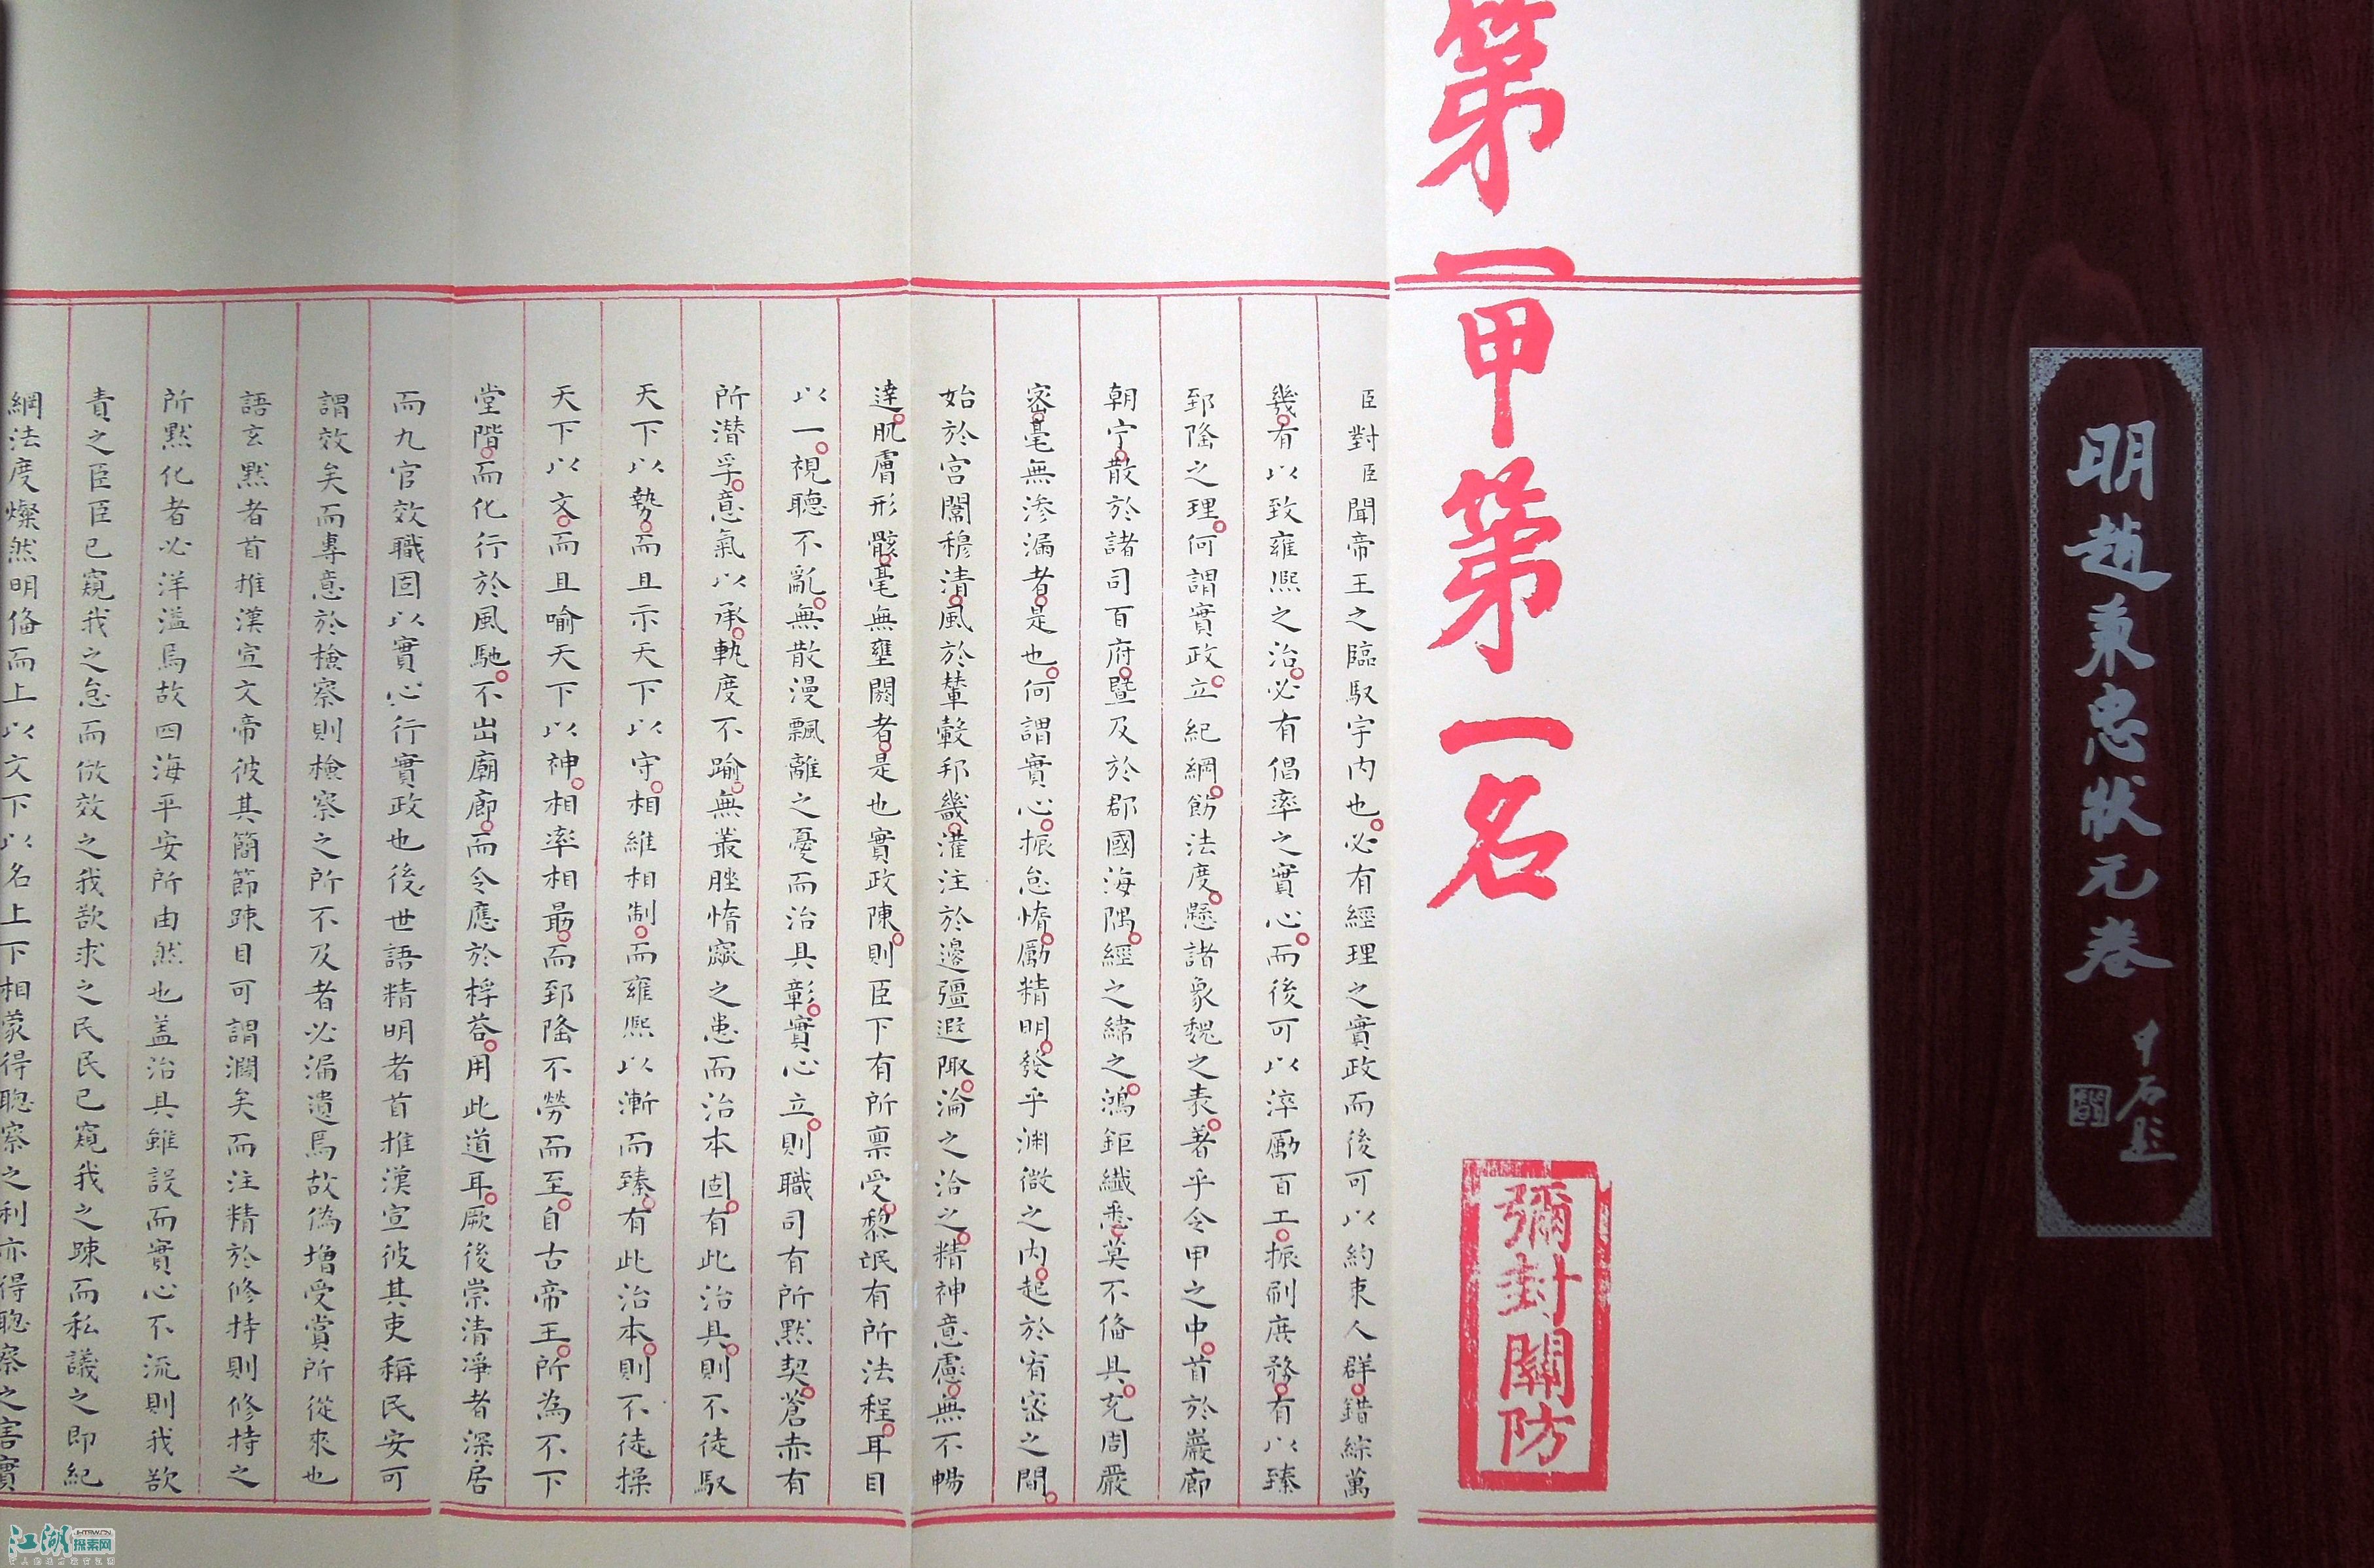 明趙秉忠狀元卷
中石題
第一甲第一名
彌封關防
臣對臣聞帝王之臨馭宇内也必有經理之實政而後可以約束人群錯綜萬
幾有以致雍熙之治必有倡率之實心而後可以淬勵百工振刷庶務有以臻
郅隆之理何謂實政立紀綱飭法度懸諸象魏之表著乎令甲之中首於巖廊
朝宁散於諸司百府暨及於郡國海隅經之緯之鴻鉅纖悉莫不備具充周嚴
密毫無滲漏者是也何謂實心振怠惰勵精明發乎淵微之内起於宥密之間
始於宫闈穆清風於輦轂邦畿灌注於邊疆遐陬淪之洽之精神意慮無不暢
達肌膚形骸毫無壅閼者是也實政陳則臣下有所禀受黎氓有所法程耳目
以一視聽不亂無散漫飄離之憂而治具彰實心立則職司有所默契蒼赤有
所潛孚意氣以承軌度不踰無叢脞惰窳之患而治本固有此治具則不徒馭
天下以勢而且示天下以守相維相制而雍熙以漸而臻有此治本則不徒操
天下以文而且喻天下以神相率相最而郅隆不勞而至自古帝王所為不下
堂階而化行於風馳不出廟廊而令應於桴荅用此道耳厥後崇清淨者深居
而九官效職固以實心行實政也後世語精明者首推漢宣彼其吏稱民安可
謂效矣而專意於檢察則檢察之所不及者必漏遺焉故偽增受賞所從來也
語玄默者首推漢宣文帝彼其簡節踈目可謂濶矣而注精於修持則修持之
所默化者必洋溢焉故四海平安所由然也盖治具雖設而實心不流則我欲
責之臣臣已窺我之怠而倣效之我欲求之民民已窺我之踈而私議之即紀
綱法度燦然明俻而上以文下以名上下相蒙得聰察之利亦得聰察之害實
江湖
探索网